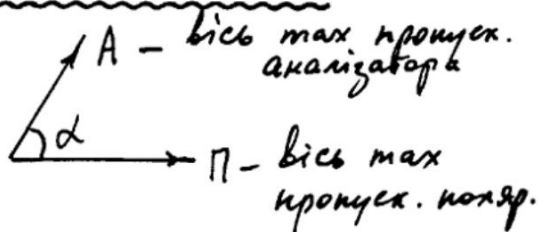 А – вісь max пропуск.
аналізатора
α
П – вісь max
пропуск. поляр.